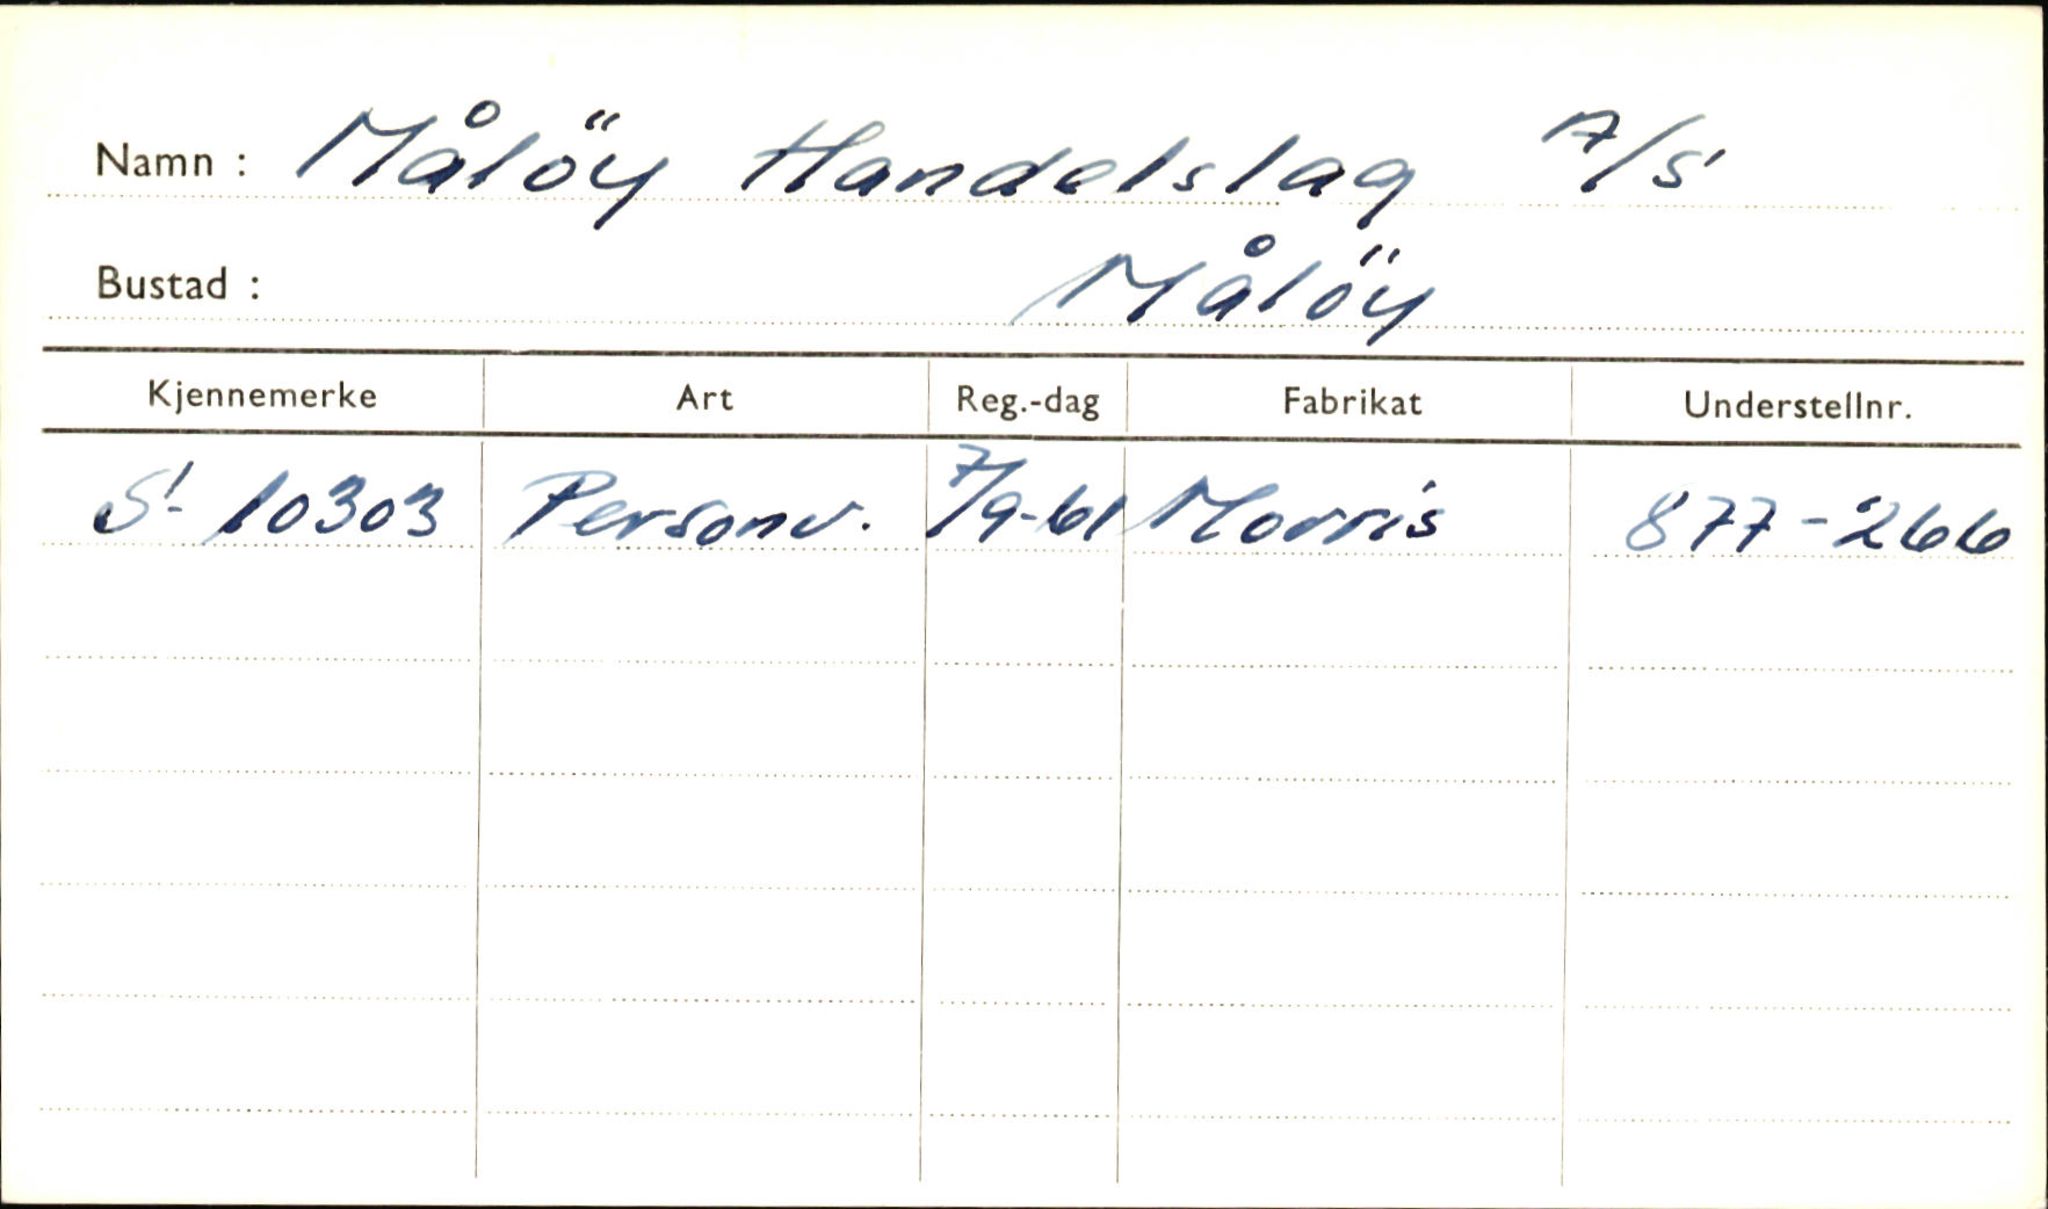 Namn : Målöy Handelslag A/S
Bustad : Målöy
Kjennemerke Art Reg.-dag Fabrikat Understellnr.
S-10303 Personv. 7/9-61 Morris 877-266